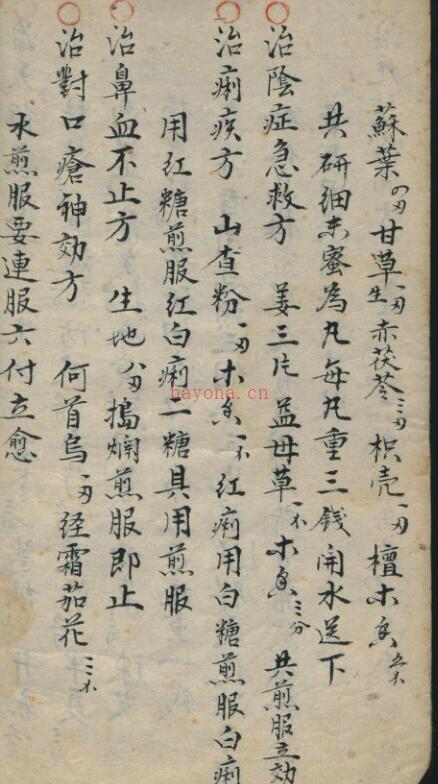 蘇葉四刄甘草生一刄赤茯苓三刄枳壳一刄檀木香五不
共研細末蜜為丸每丸重三錢開水送下
治陰症急救方 姜三片益母草一不木香三分 共煎服立効
治痢疾方 山查粉一刄木香一不红痢用白糖煎服白痢
用红糖煎服红白痢二糖具用煎服
治鼻血不止方 生地八刄搗爛煎服即止
治對口瘡神効方 何首烏一刄经霜茄花三不
水煎服要連服六付立愈
hayona.cn